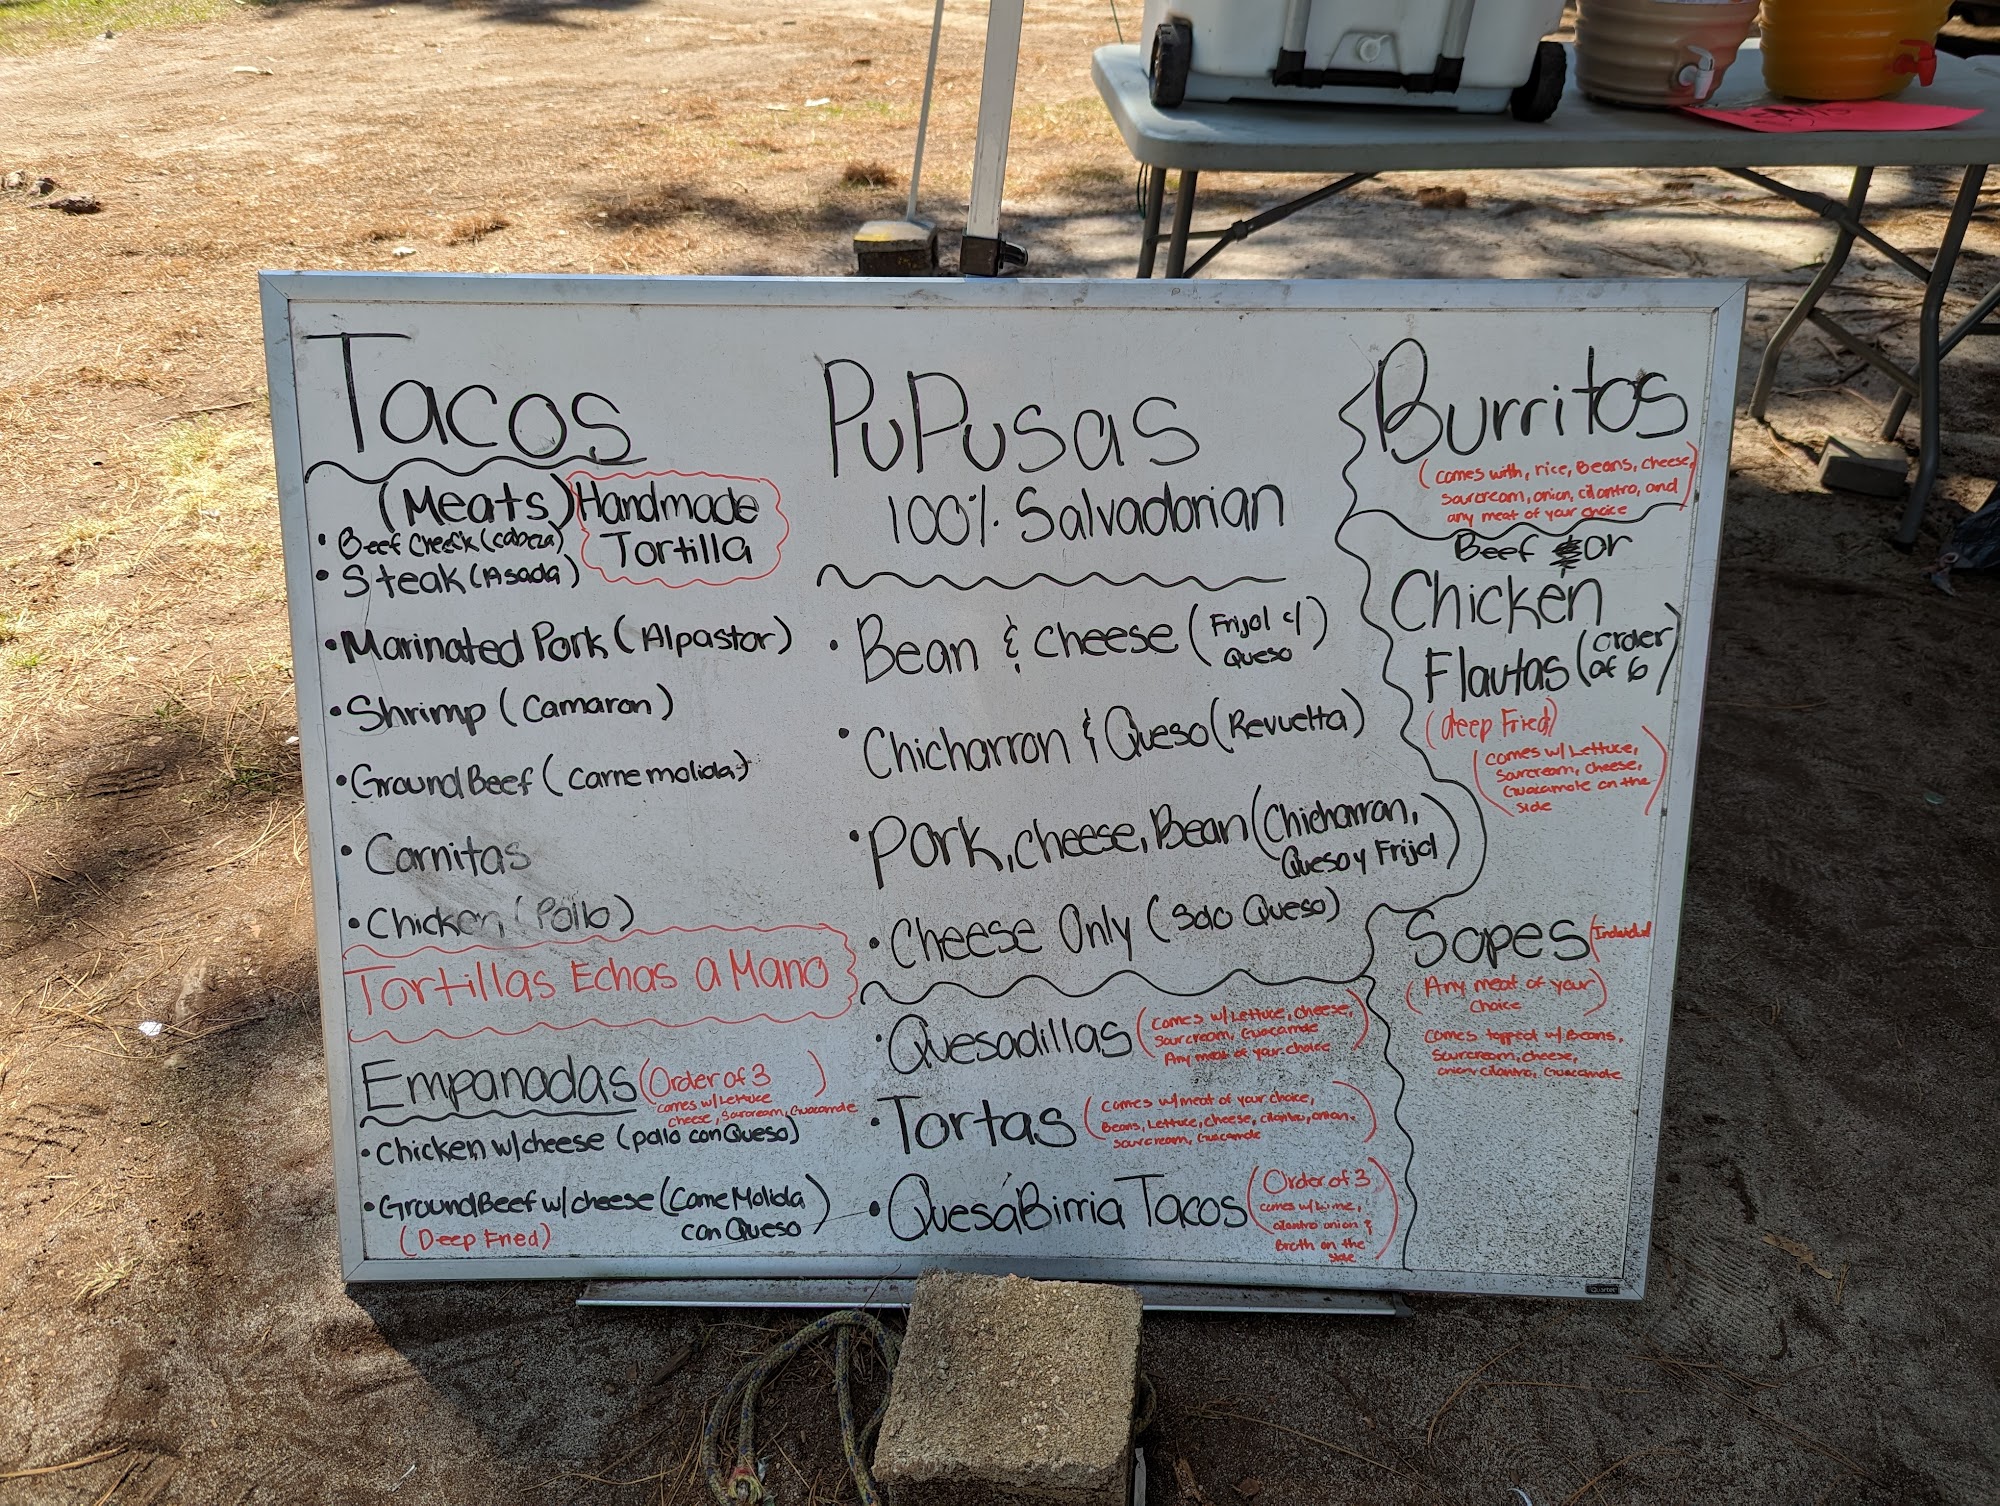 Tacos
(Meats)
Handmade
Tortilla
• Beef Cheeck (cabeza)
• Steak (Asada)
• Marinated Pork (Alpastor)
• Shrimp (Camaron)
• Ground Beef (carne molida)
• Carnitas
• Chicken (Pollo)
Tortillas Echas a Mano
Empanadas (Order of 3)
comes w/ Lettuce
cheese, Sourcream, Guacamole
• Chicken w/cheese (pollo con Queso)
• Ground Beef w/cheese (Carne Molida
con Queso)
(Deep Fried)
PuPusas
100% Salvadorian
• Bean & cheese (Frijol c/
Queso)
• Chicharron & Queso (Revuelta)
• Pork, cheese, Bean (Chicharron,
Queso y Frijol)
• Cheese Only (Solo Queso)
• Quesadillas (comes w/ Lettuce, cheese,
Sourcream, Guacamole
Any meat of your choice)
• Tortas (comes w/meat of your choice,
Beans, Lettuce, cheese, cilantro, onion,
sourcream, Guacamole)
• QuesáBirria Tacos (Order of 3
comes w/ Lime,
cilantro onion &
Broth on the
side)
Burritos
(comes with, rice, Beans, cheese,
sourcream, onion, cilantro, and
any meat of your choice)
Beef or
Chicken
Flautas (order
of 6)
(deep Fried)
(comes w/ Lettuce,
Sourcream, cheese,
Guacamole on the
side)
Sopes (Individual
(Any meat of your
choice)
Comes topped w/ Beans,
sourcream, cheese,
onion cilantro, Guacamole
Quartet